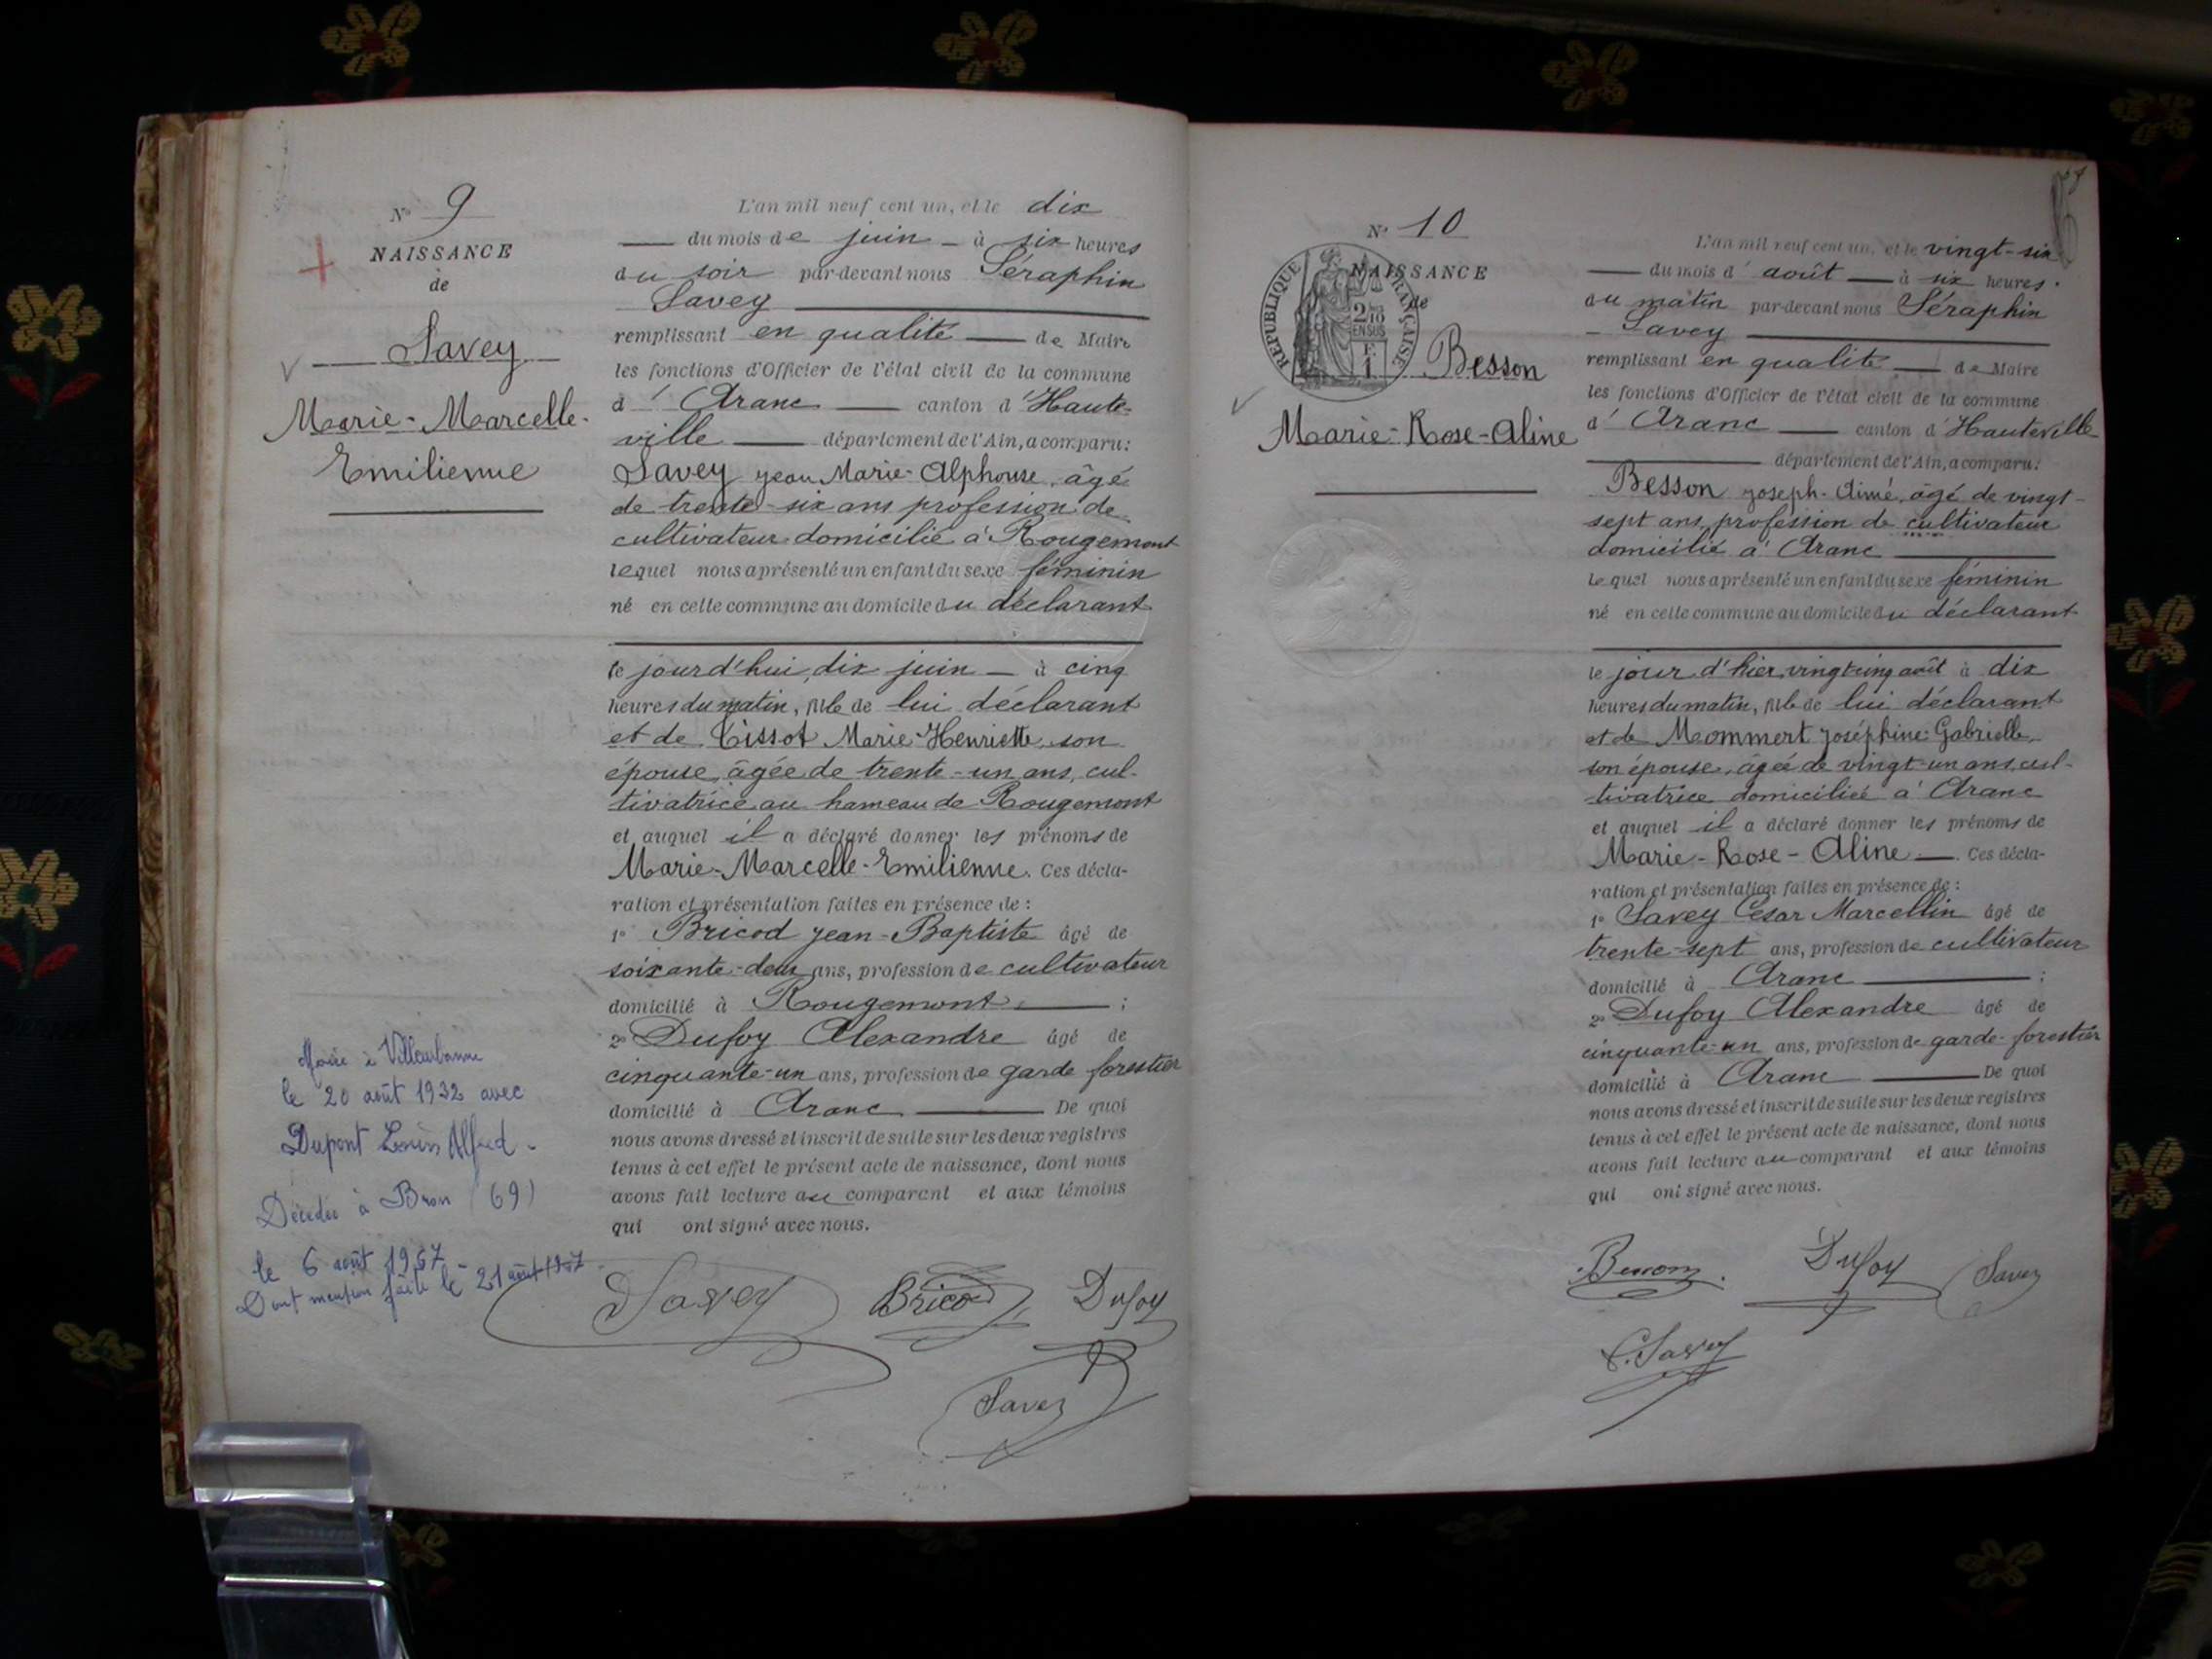 N° 9
NAISSANCE
de
Savey
Marie-Marcelle-
Emilienne
Mariée à Villeurbanne
le 20 août 1932 avec
Dupont Louis Alfred -
Décédée à Bron (69)
le 6 août 1967 -
Dont mention faite le 21 août 1967
L'an mil neuf cent un, et le dix
du mois de juin - à six heures
du soir par-devant nous Séraphin
Savey
remplissant en qualité de Maire
les fonctions d'Officier de l'état civil de la commune
d' Aranc canton d'Haute-
ville département de l'Ain, a comparu:
Savey Jean Marie-Alphonse, âgé
de trente-six ans profession de
cultivateur domicilié à Rougemont
lequel nous a présenté un enfant du sexe féminin
né en cette commune au domicile du déclarant
le jourd'hui, dix juin - à cinq
heures du matin, fille de lui déclarant
et de Tissot Marie-Henriette, son
épouse, âgée de trente-un ans, cul-
tivatrice au hameau de Rougemont
et auquel il a déclaré donner les prénoms de
Marie-Marcelle-Emilienne. Ces décla-
ration et présentation faites en présence de :
1° Bricod Jean-Baptiste âgé de
soixante-deux ans, profession de cultivateur
domicilié à Rougemont ;
2° Dufoy Alexandre âgé de
cinquante-un ans, profession de garde forestier
domicilié à Aranc De quoi
nous avons dressé et inscrit de suite sur les deux registres
tenus à cet effet le présent acte de naissance, dont nous
avons fait lecture au comparant et aux témoins
qui ont signé avec nous.
Savey Bricod Dufoy
Savey
N° 10
NAISSANCE
de
RÉPUBLIQUE FRANÇAISE
2/10
EN SUS
F
1
Besson
Marie-Rose-Aline
L'an mil neuf cent un, et le vingt-six
du mois d' août à six heures
du matin par-devant nous Séraphin
- Savey
remplissant en qualité de Maire
les fonctions d'Officier de l'état civil de la commune
d' Aranc canton d'Hauteville
département de l'Ain, a comparu:
Besson Joseph-Aimé, âgé de vingt-
sept ans, profession de cultivateur
domicilié à Aranc
lequel nous a présenté un enfant du sexe féminin
né en cette commune au domicile du déclarant
le jour d'hier, vingt cinq août à dix
heures du matin, fille de lui déclarant
et de Mommert Joséphine-Gabrielle,
son épouse, âgée de vingt-un ans, cul-
tivatrice domiciliée à Aranc
et auquel il a déclaré donner les prénoms de
Marie-Rose-Aline. Ces décla-
ration et présentation faites en présence de :
1° Savey César Marcellin âgé de
trente-sept ans, profession de cultivateur
domicilié à Aranc ;
2° Dufoy Alexandre âgé de
cinquante-un ans, profession de garde-forestier
domicilié à Aranc De quoi
nous avons dressé et inscrit de suite sur les deux registres
tenus à cet effet le présent acte de naissance, dont nous
avons fait lecture au comparant et aux témoins
qui ont signé avec nous.
Besson Dufoy Savey
C. Savey